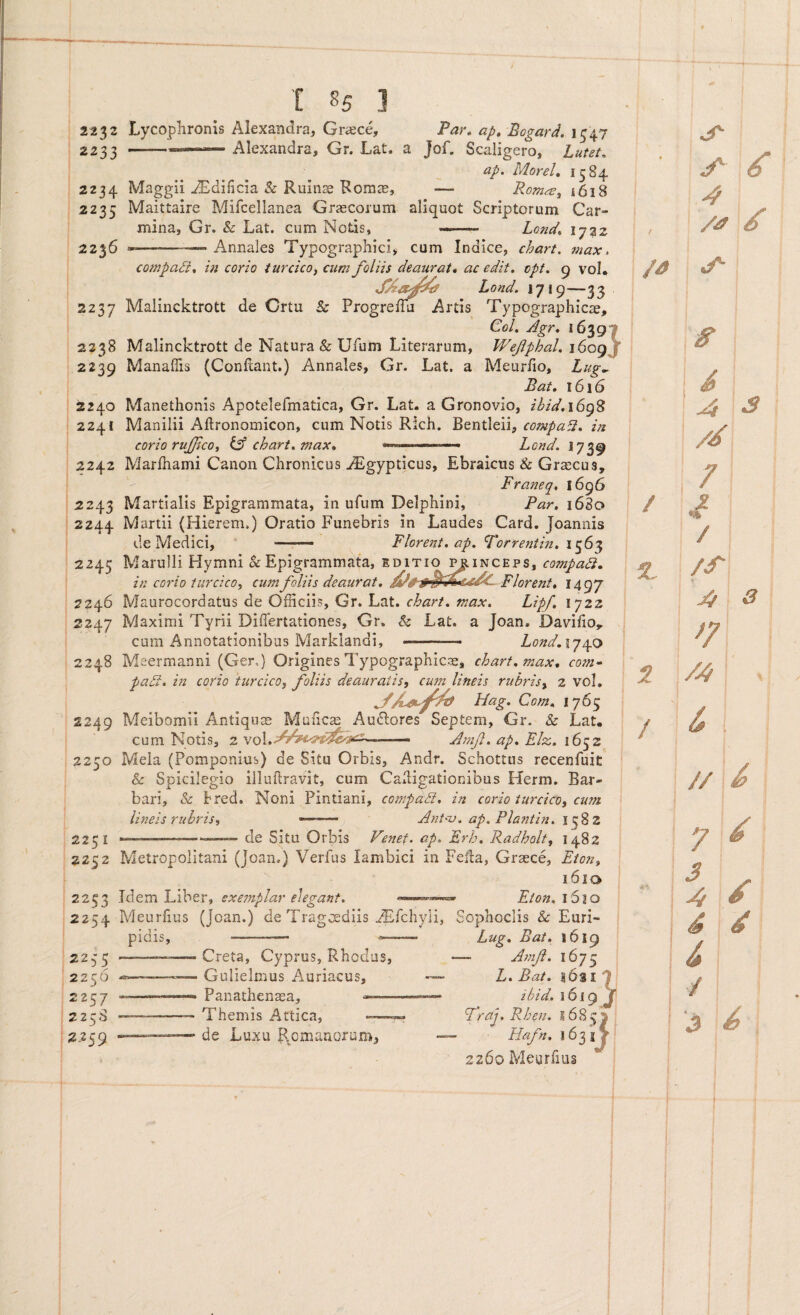 [ 85 ]
2232 Lycophronis Alexandra, Græcé, Par. ap. Bogard. 1547 5
2233 ——— Alexandra, Gr. Lat. a Jof. Scaligero, Lutet.
ap. Morel. 1584 5 6
2234 Maggii Ædificia & Ruinæ Romæ, — Romæ, 1618 4
2235 Maittaire Mifcellanea Græcorum aliquot Scriptorum Car-
mina, Gr. & Lat. cum Notis, —— Lond. 1722 10 6
2236 ——— Annales Typographici, cum Indice, chart. max.
compact. in corio turcico, cum foliis deaurat. ac edit. opt. 9 vol. 10 5
Lond. 1719—33
2237 Malincktrott de Ortu & Progreffu Artis Typographicæ,
Col. Agr. 1639 }
2238 Malincktrott de Natura & Ufum Literarum, Weftphal. 1609 } 8
2239 Manaffis (Conftant.) Annales, Gr. Lat. a Meurfio, Lug.
Bat. 1616 6
2240 Manethonis Apotelefmatica, Gr. Lat. a Gronovio, ibid. 1698 4 3
2241 Manilii Aftronomicon, cum Notis Rich. Bentleii, compact. in
corio ruffico, & chart. max. ——— Lond. 1739 16
2242 Marfhami Canon Chronicus Ægypticus, Ebraicus & Græcus,
Franeq. 1696 7
2243 Martialis Epigrammata, in ufum Delphini, Par. 1680 1 2
2244 Martii (Hierem.) Oratio Funebris in Laudes Card. Joannis
de Medici, —— Florent. ap. Torrentin. 1563 1
2245 Marulli Hymni & Epigrammata, EDITIO PRINCEPS, compact.
in corio turcico, cum foliis deaurat. Florent. 1497 2 15
2246 Maurocordatus de Officiis, Gr. Lat. chart. max. Lipf. 1722 4 3
2247 Maximi Tyrii Differtationes, Gr. & Lat. a Joan. Davifio,
cum Annotationibus Marklandi, —— Lond. 1740 17
2248 Meermanni (Ger.) Origines Typographicæ, chart. max. com-
pact. in corio turcico, foliis deauratis, cum lineis rubris, 2 vol. 2 14
Hag. Com. 1765
2249 Meibomii Antiquæ Muficæ Auctores Septem, Gr. & Lat.
cum Notis, 2 vol. —— Amft. ap. Elz. 1652 1 6
2250 Mela (Pomponius) de Situ Orbis, Andr. Schottus recenfuit
& Spicilegio illuftravit, cum Caftigationibus Herm. Bar-
bari, & Fred. Noni Pintiani, compact. in corio turcico, cum 11 6
lineis rubris, —— Antv. ap. Plantin. 1582
2251 ——— de Situ Orbis Venet. ap. Erh. Radholt, 1482 7 6
2252 Metropolitani (Joan.) Verfus Iambici in Fefta, Græcé, Eton,
1610 3
2253 Idem Liber, exemplar elegant. ——— Eton. 1610 4 6
2254 Meurfius (Joan.) de Tragœdiis Æfchyli, Sophoclis & Euri-
pidis, ——— —— Lug. Bat. 1619 6 6
2255 ——— Creta, Cyprus, Rhodus, — Amft. 1675 6
2256 ——— Gulielmus Auriacus, — L. Bat. 1621 }
2257 ——— Panathenæa, ——— ibid. 1619 } 1
2258 ——— Themis Attica, —— Traj. Rhen. 1685 }
2259 ——— de Luxu Romanorum, — Hafn. 1631 } 3 6
2260 Meurfius